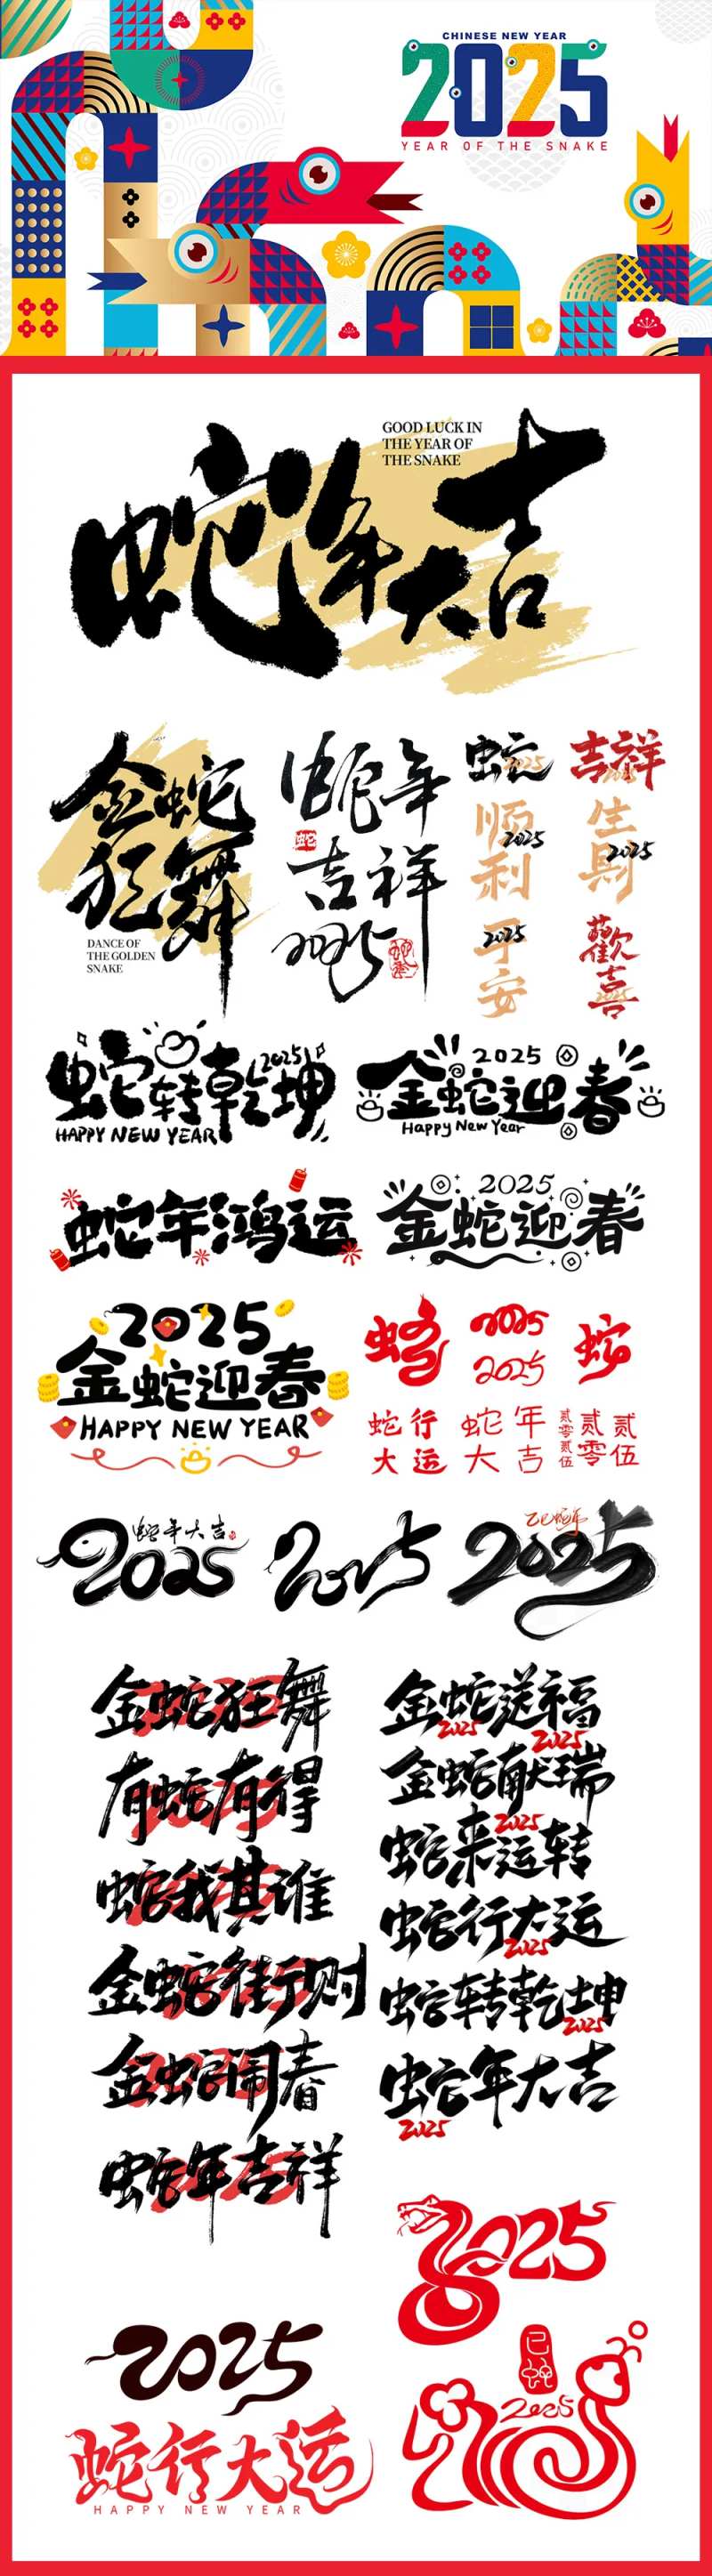 CHINESE NEW YEAR
2025
YEAR OF THE SNAKE
GOOD LUCK IN
THE YEAR OF
THE SNAKE
蛇年大吉
金蛇
狂舞
DANCE OF
THE GOLDEN
SNAKE
蛇年
吉祥
2025
蛇
2025
吉祥
2025
顺利
2025
生财
2025
平安
2025
歡喜
2025
蛇转乾坤
2025
HAPPY NEW YEAR
2025
金蛇迎春
Happy New Year
蛇年鸿运
2025
金蛇迎春
2025
金蛇迎春
HAPPY NEW YEAR
蛇
2025
2025
蛇
蛇行
大运
蛇年
大吉
贰零贰伍
贰零
贰伍
蛇年大吉
2025
2025
乙巳蛇年
2025
金蛇狂舞
有蛇有得
蛇我其谁
金蛇街则
金蛇闹春
蛇年吉祥
金蛇送福
2025
2025
金蛇献瑞
2025
蛇来运转
蛇行大运
2025
蛇转乾坤
2025
蛇年大吉
2025
2025
2025
蛇行大运
HAPPY NEW YEAR
己蛇
2025